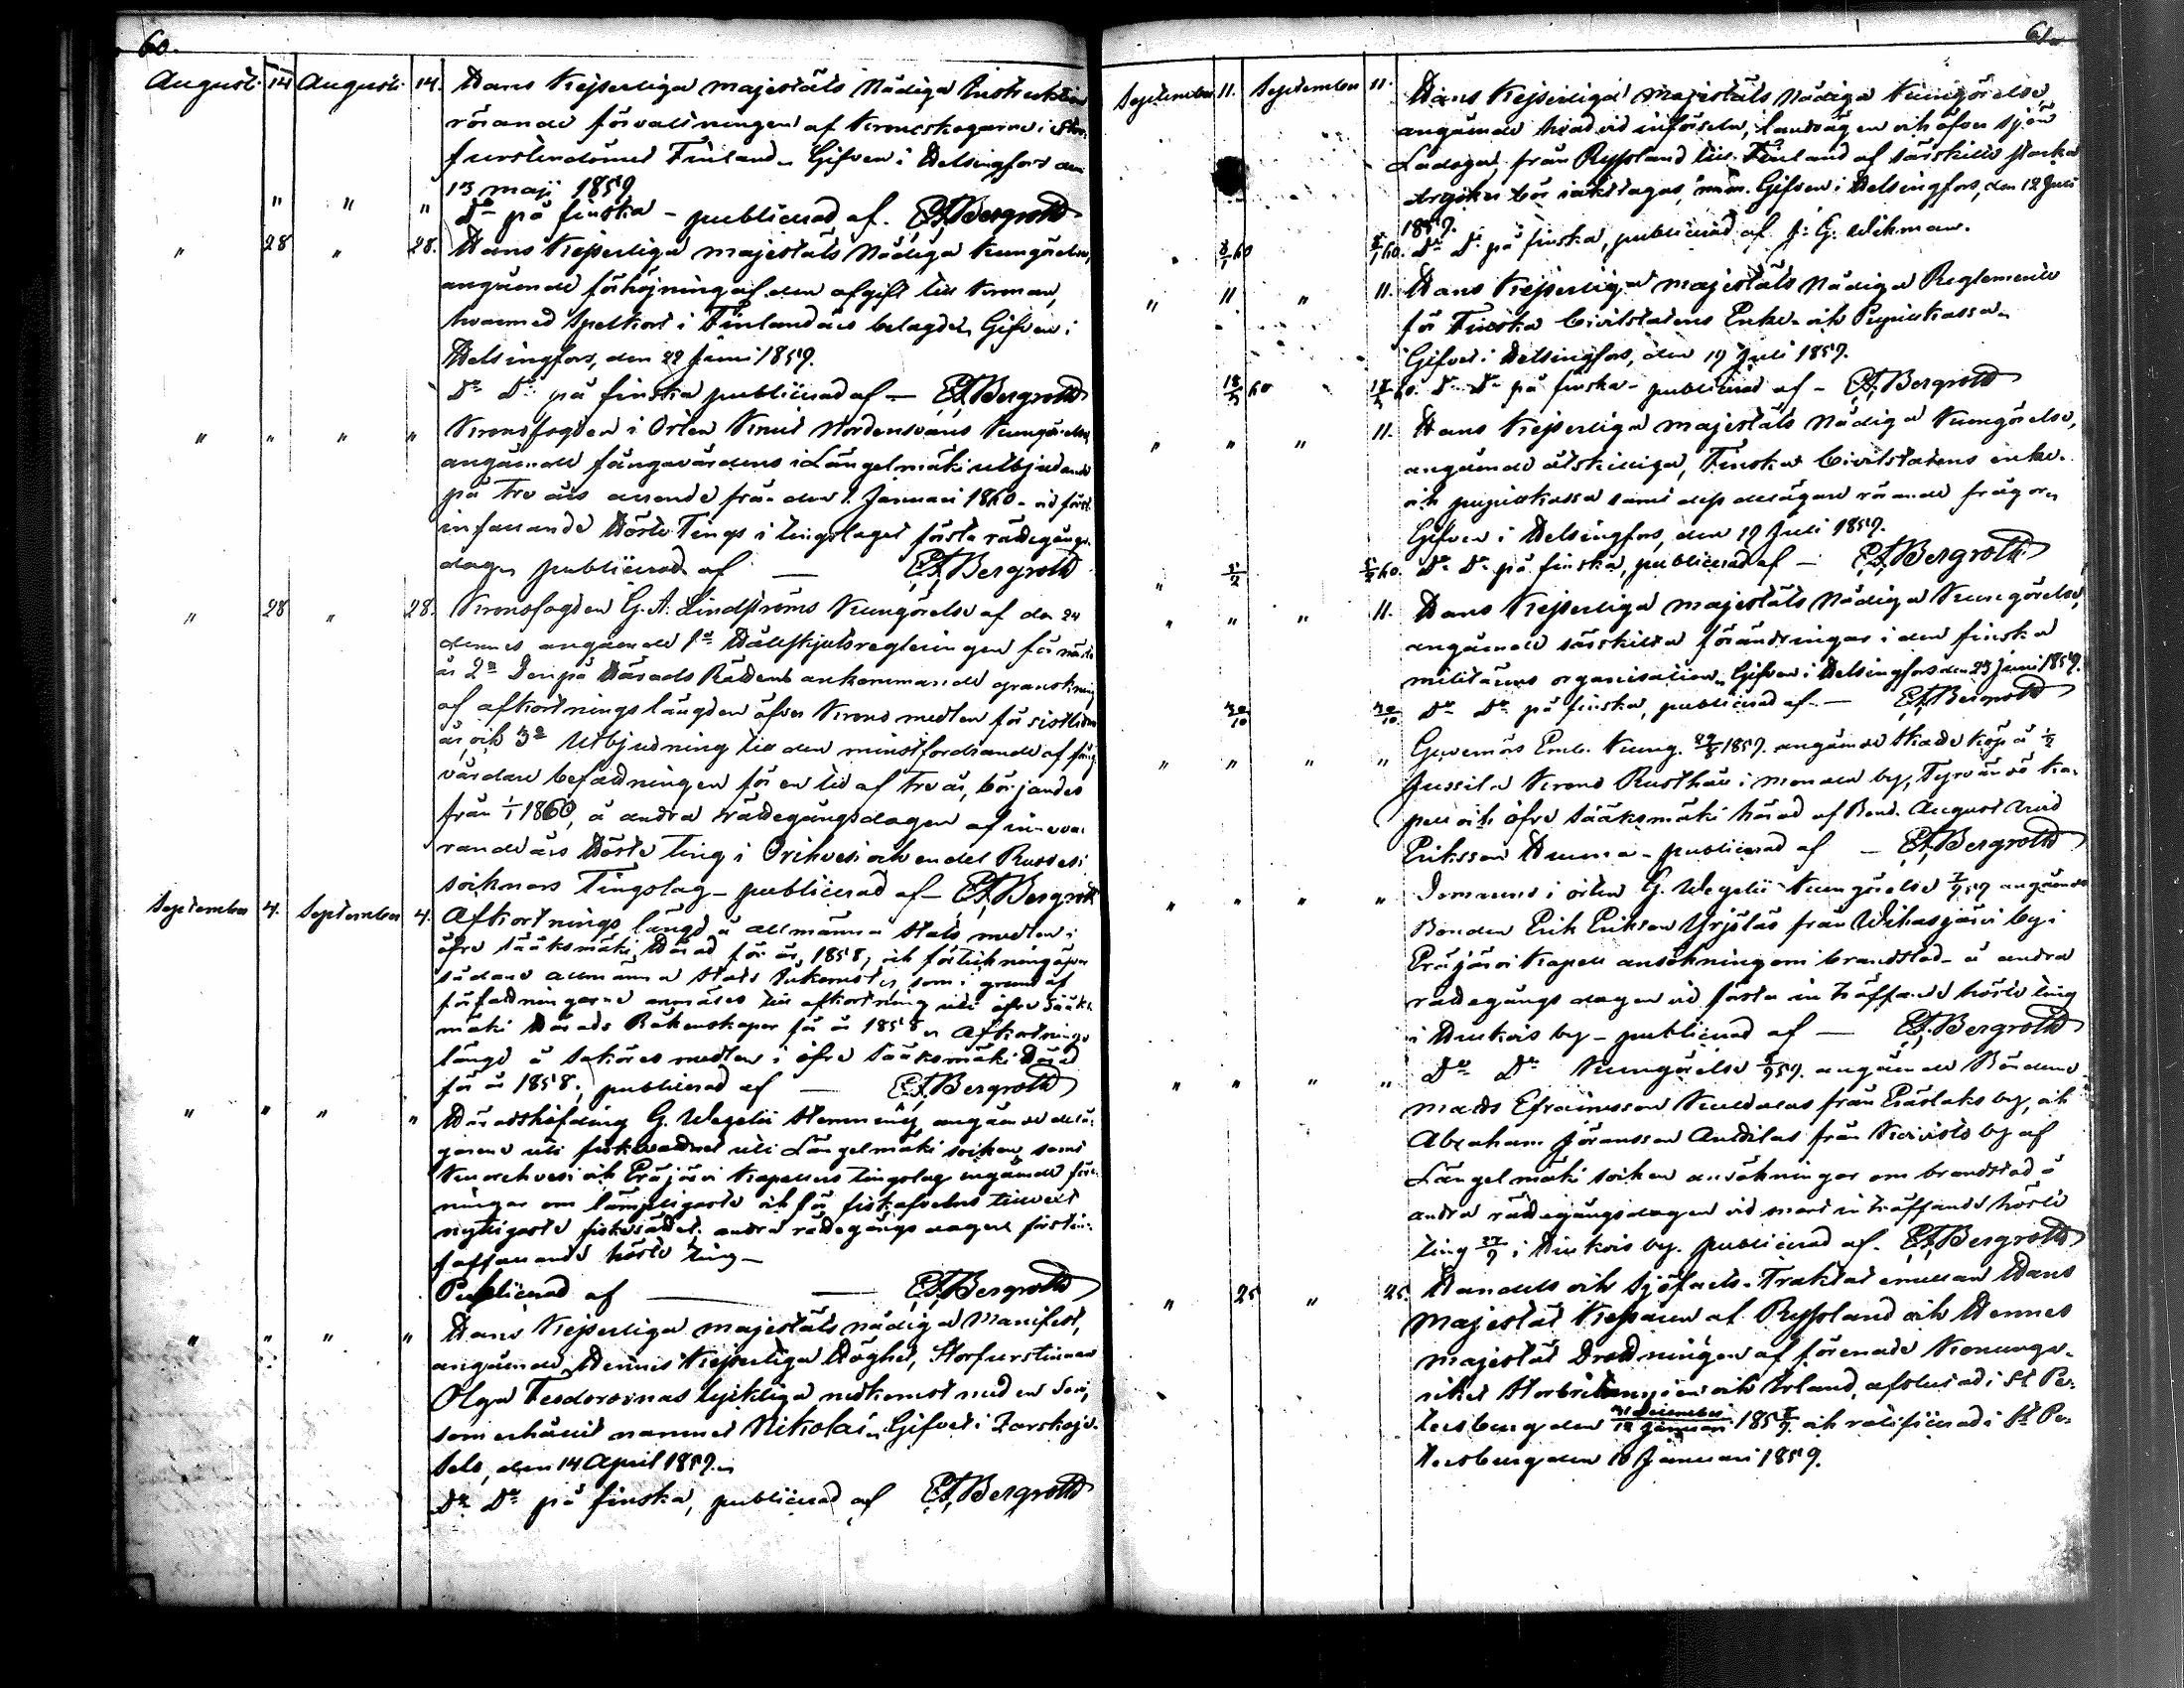 60.
Augusti. 14 Augusti. 14. Hans Kejserliga Majestäts Nådiga Instruktion
rörande förvaltningen af Kronoskogarne i Stor-
furstendömet Finland. Gifven i Helsingfors den
13 maji 1859.
" " " Do på finska - publicerad af. E.F. Bergroth
" 28 " 28. Hans Kejserliga Majestäts Nådiga Kungörelse,
angående förhöjning af den afgift till Kronan,
hvarmed Spelkort i Finland äro belagde. Gifven i
Helsingfors, den 22 Juni 1859.
Do Do på finska publicerad af — E.F. Bergroth
" " " " Kronofogden i Orten Knut Nordensvans Kungörelse
angående fångavårdens i Längelmäki utbjudande
på tre års arende från den 1. Januari 1860 - vid först
infallande Höste Tings i tingslaget första rättegångs-
dag, publicerad af — E.F. Bergroth
" 28 " 28. Kronofogden G. A. Lindströms Kungörelse af den 24
dennes angående 1o Hållskjutsregleringen för nästa
år 2o Den på Härads Rättens ankommande granskning
af afkortningslängden öfver Krono medlen för sistlidne
år, och 3o Utbjudning till den minstfordrande af fång-
vårdare befattningen för en tid af tre år, börjandes
från 1/1 1860, å andra rättegångsdagen af inneva-
rande års Höste ting i Orihvesi och en del Ruovesi
socknars Tingslag - publicerad af - E.F. Bergroth
September 4. September 4. Afkortnings längd å allmänna Stats medlen i
öfre Sääksmäki Härad för år 1858, och förtekning öfver
sådane allmänna Stats Inkomster, som i grund af
författningarne anmäles till afkortning uti öfre Sääks-
mäki Härads Räkenskaper för år 1858. Afkortnings
längd å Saköres medlen i öfre Sääksmäki Härad
för år 1858; publicerad af — E.F. Bergroth
" " " " Häradshöfding G. Wegelii Stemning, angående delä-
garene uti fiskevattnet uti Längelmäki socken samt
Kuorehvesi och Eräjärvi Kapellers tingslag ingående
ningar om lämpligaste och för fiskafvelns tillvext
nyttigaste fiskesättet, andra rättegångs dagen
fallande höste ting —
Publicerad af — E.F. Bergroth
" " " " Hans Kejserliga Majestäts nådiga Manifest,
angående Hennes Kejserliga Höghet, Storfurstinnan
Olga Feodorovnas lyckliga nedkomst med en Son,
som erhållit namnet Nikolai. Gifvet i Zarskoje-
Selo, den 14 April 1859.
Do Do på finska, publicerad af E.F. Bergroth
61.
September 11. September 11. Hans Kejserliga Majestäts Nådiga Kungörelse,
angående hvad vid införseln, landvägen och öfver sjön
Ladoga, från Ryssland till Finland af särskilte starka
drycker bör iakttagas, Gifven i Helsingfors, den 12 Juli
1859.
" 8/1 60 8/1 60. Do Do på finska, publicerad af J. G. Wikman.
" 11 " 11. Hans Kejserliga Majestäts Nådiga Reglemente
för Finska Civilstatens Enke- och Pupillkassa.
Gifvet i Helsingfors, den 19 Juli 1859.
18/3 60 18/3 60. Do Do på finska - publicerad af - E.F. Bergroth
" " " 11. Hans Kejserliga Majestäts Nådiga Kungörelse,
angående åtskilliga, Finska Civilstatens enke-
och pupillkassa samt dess delägare rörande frågor.
Gifven i Helsingfors, den 19 Juli 1859.
" 5/2 5/2 60. Do Do på finska, publicerad af — E.F. Bergroth
" " " 11. Hans Kejserliga Majestäts Nådiga Kungörelse,
angående särskilta förändringar i den finska
militärens organisation. Gifven i Helsingfors den 23 Juni 1859.
30/10 30/10 Do Do på finska, publicerad af — E.F. Bergroth
" " " " Guvernörs Emb. Kung. 29/8 1859. angående Skatte köp å 1/2
Jussila Krono Rusthåll i by, Tyrväntö Ka-
pell och öfre Sääksmäki härad af Bond. August Arvid
Eriksson - publicerad af — E.F. Bergroth
" " " " Domarens i orten G. Wegelii Kungörelse angående
Bonden Erik Erikson Yrjöläs från Wihasjärvi by i
Eräjärvi Kapell ansökning om brandstod - å andra
rättegångs dagen vid första inträffande höste ting
i by - publicerad af — E.F. Bergroth
" " " " Do Do Kungörelse angående Bönderne
Mats Efraimsson från by, och
Abraham Göransson Anttilas från Koivisto by af
Längelmäki socken ansökningar om brandstod å
andra rättegångsdagen vid inträffande höste
ting 27/9 i by. publicerad af. E.F. Bergroth
" 25 " 25. Handels och Sjöfarts-Traktat emellan Hans
Majestät Kejsaren af Ryssland och Hennes
Majestät Drottningen af förenade Konunga-
riket Storbritannien och Irland, afslutad i St. Pe-
tersburg den 31 December/12 Januari 1858/9. och ratificerad i St. Pe-
tersburg den 10 Januari 1859.